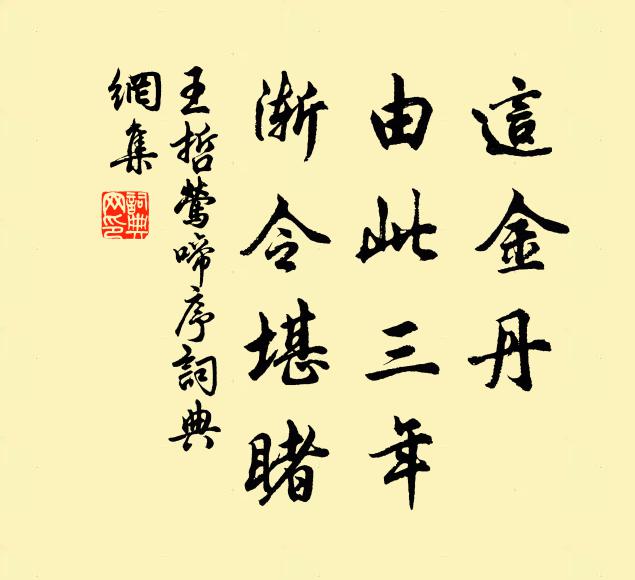 這金丹
由此三年
漸令堪睹
王哲鶯啼序詞典
網集
詞典
網印